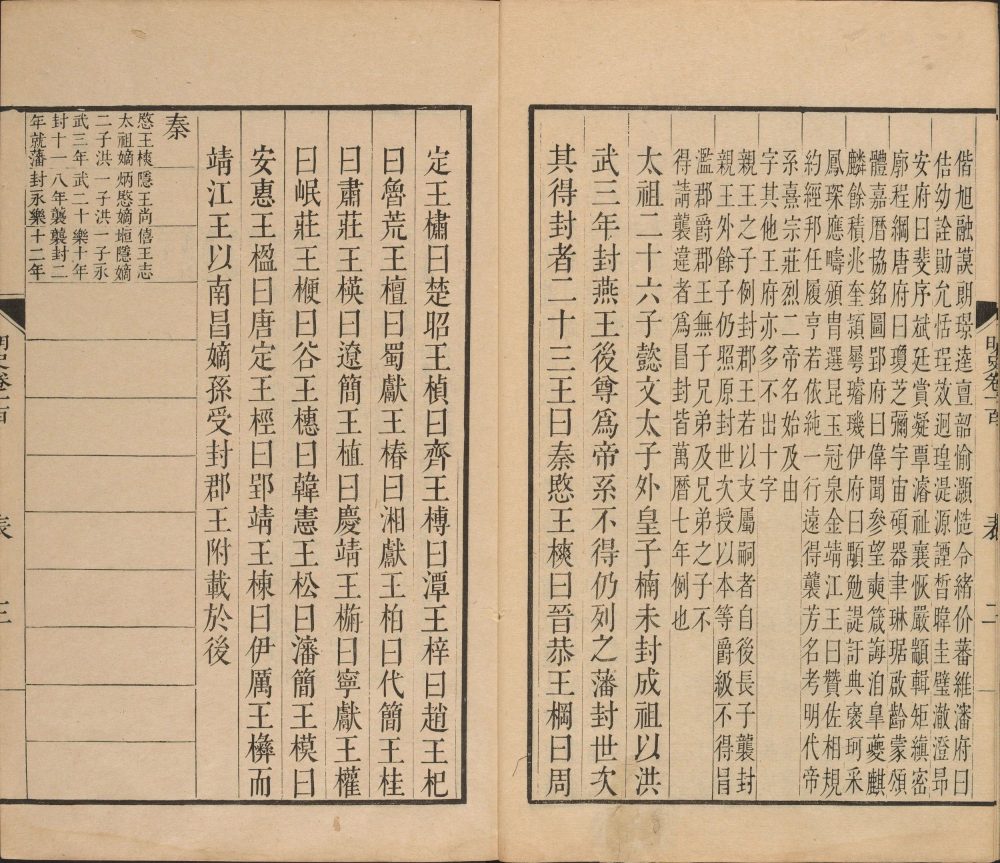 偕旭融謨朗璟逵亶韶愉灝慥令緒价蕃維瀋府曰
佶幼詮勛允恬珵效迥瑝湜源諲晢暐圭璧澈澄昂
安府曰斐序斌廷賞凝覃濬祉襄恢嚴顓輯矩縝密
廓程綱唐府曰瓊芝彌宇宙碩器聿琳琚啟齡蒙頌
體嘉曆協銘圖郢府曰偉聞參望奭箴誨洎皐夔麒
麟餘積兆奎穎曓璿璣伊府曰顒勉諟訏典褒珂采
鳳琛應疇頒胄選昆玉冠泉金靖江王曰贊佐相規
約經邦任履亨若依純一行遠得襲芳名考明代帝
系熹宗莊烈二帝名始及由
字其他王府亦多不出十字
親王之子例封郡王若以支屬嗣者自後長子襲封
親王外餘子仍照原封世次授以本等爵級不得冐
濫郡爵郡王無子兄弟及兄弟之子不
得請襲違者爲昌封皆萬曆七年例也
太祖二十六子懿文太子外皇子楠未封成祖以洪
武三年封燕王後尊爲帝系不得仍列之藩封世次
其得封者二十三王曰秦愍王樉曰晉恭王棡曰周
明史卷一百
表
二
定王橚曰楚昭王楨曰齊王榑曰潭王梓曰趙王杞
曰魯荒王檀曰蜀獻王椿曰湘獻王柏曰代簡王桂
曰肅莊王楧曰遼簡王植曰慶靖王㮵曰寧獻王權
曰岷莊王楩曰谷王橞曰韓憲王松曰瀋簡王模曰
安惠王楹曰唐定王桱曰郢靖王棟曰伊厲王㰘而
靖江王以南昌嫡孫受封郡王附載於後
秦
愍王樉
太祖嫡
二子洪
武三年
封十一
年就藩
隱王尚
炳愍嫡
一子洪
武二十
八年襲
封永樂
僖王志
堩隱嫡
一子永
樂十年
襲封二
十二年
明史卷一百
表
三